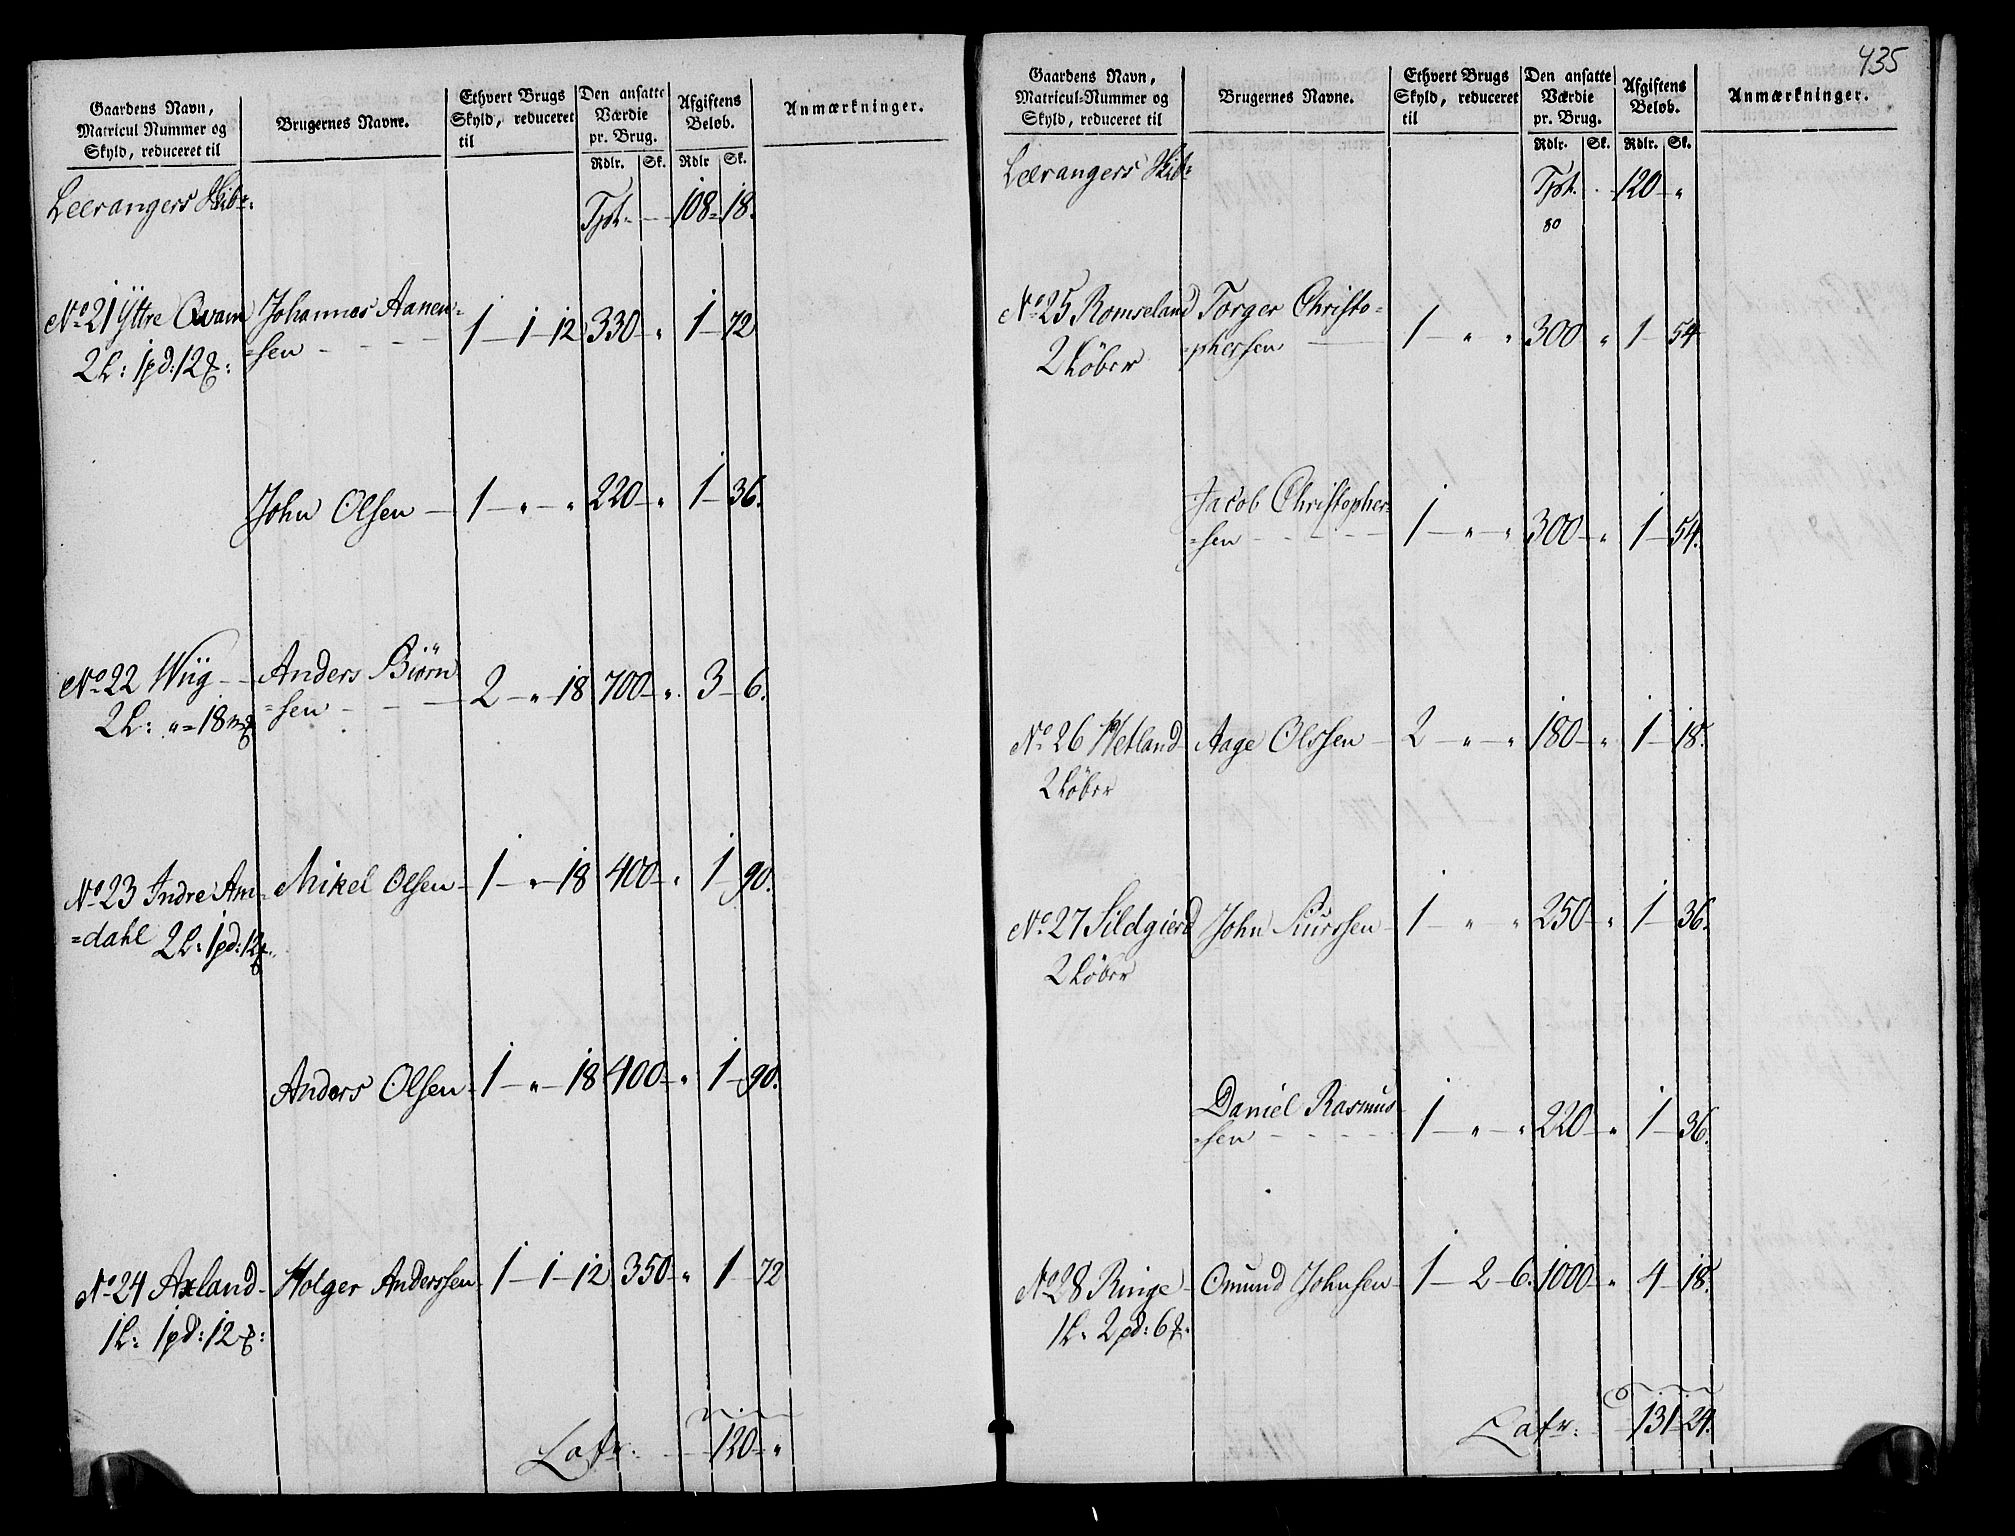 Gaardens Navn,
Matricul Nummer og
Skyld, reduceret til
Brugernes Navne.
Ethvert Brugs
Skyld, reduceret
til
Den ansatte
Værdie
pr. Brug.
Rdlr. Sk.
Afgiftens
Beløb.
Rdlr Sk.
Anmærkninger.
Leerangers Skibr:
Tpt. 108 18.
No 21 Yttre Qvam Johannes Aanen=
=sen 1 1 12 330 " 1 72
2 L: 1 pd: 12
John Olsen 1 " " 220 " 1 36.
No 22 Wiig Anders Biørn
=sen 2 " 18 700 " 3 6.
2 L: " = 18
No 23 Indre Am= Mikel Olsen 1 " 18 400 " 1 90.
=dahl 2 L: 1 pd: 12
Anders Olsen 1 " 18 400 " 1 90.
No 24 Axland Holger Anderssen 1 1 12 350 " 1 72
1 L: 1 pd: 12
Latr: 120 "
435
Gaardens Navn,
Matricul-Nummer og
Skyld, reduceret til
Brugernes Navne.
Ethvert Brugs
Skyld, reduceret
til
Den ansatte
Værdie
pr. Brug.
Rdlr. Sk.
Afgiftens
Beløb.
Rdlr. Sk.
Anmærkninger.
Leerangers Skib:
Tpt. 120 "
80
No 25 Romseland Torger Christo=
=phersen 1 " " 300 " 1 54
2 Løber
Jacob Christopher=
=sen 1 " " 300 " 1 54.
No 26 Hetland Aage Olssen 2 " " 180 " 1 18.
2 Løber
No 27 Sildgierd John Siurssen 1 " " 250 " 1 36.
2 Løber
Daniel Rasmus
=sen 1 " " 220 " 1 36.
No 28 Ringe Omund Johnsen 1 2 6. 1000 " 4 18.
1 L. 2 pd: 6
Latr: 131 24.